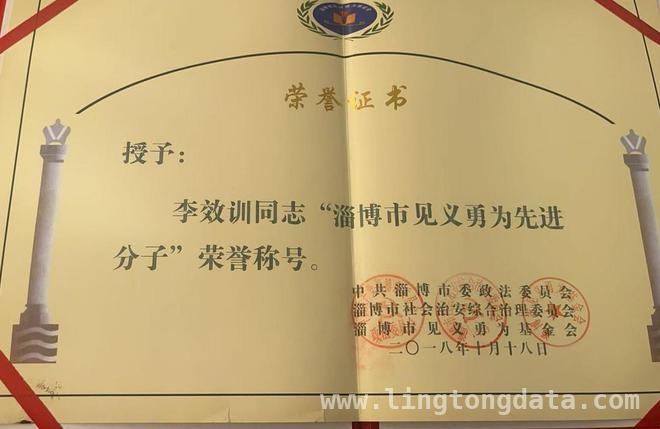 荣誉证书
授予：
李效训同志“淄博市见义勇为先进
分子”荣誉称号。
中共淄博市委政法委员会
淄博市社会治安综合治理委员会
淄博市见义勇为基金会
二〇一八年十月十八日
www.lingtongdata.com